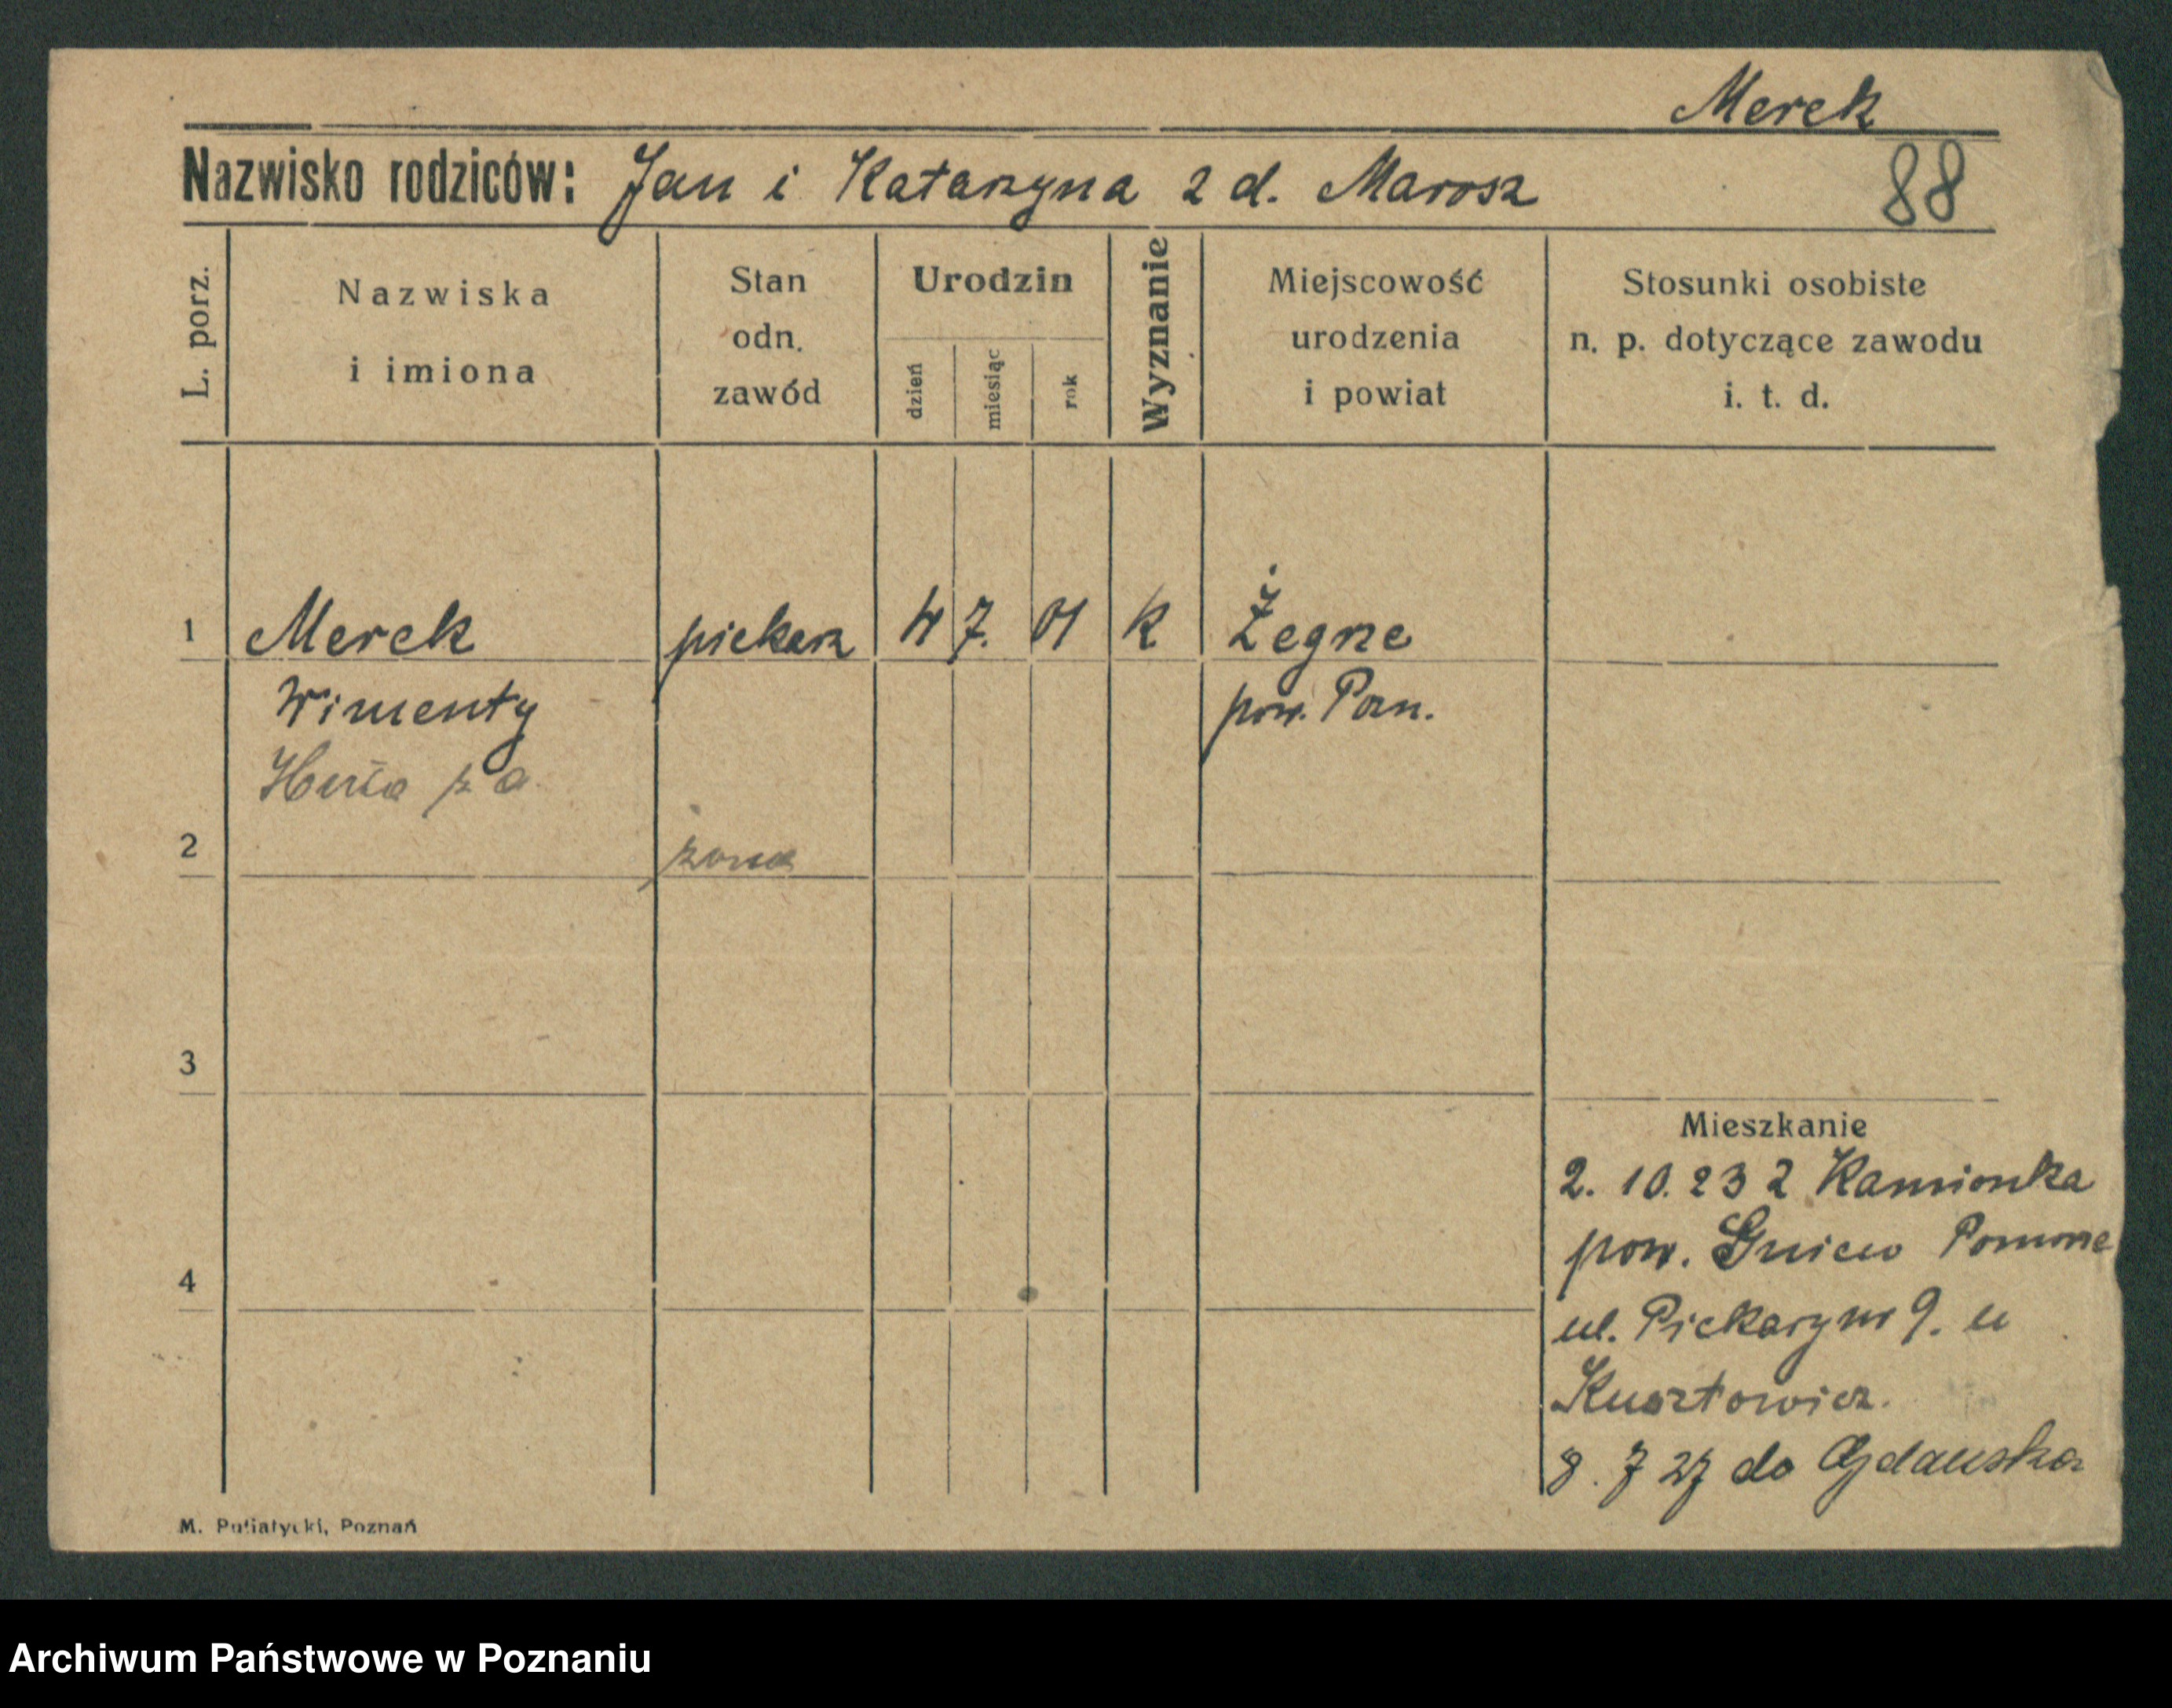 Merek
Nazwisko rodziców: Jan i Katarzyna z d. Marosz
88
L. porz.
Nazwiska
i imiona
Stan
odn.
zawód
Urodzin
dzień
miesiąc
rok
Wyznanie
Miejscowość
urodzenia
i powiat
Stosunki osobiste
n. p. dotyczące zawodu
i. t. d.
1 Merek piekarz 7. 01 K Żegrze
Wincenty pow. Pozn.
2
żona
3
Mieszkanie
2. 10. 23 z Kamionka
pow. Gniew Pomorze
4
ul. Piekary nr 9. u
Kusztowicz.
8. 7 27 do Gdańska
M. Putiatycki, Poznań
Archiwum Państwowe w Poznaniu